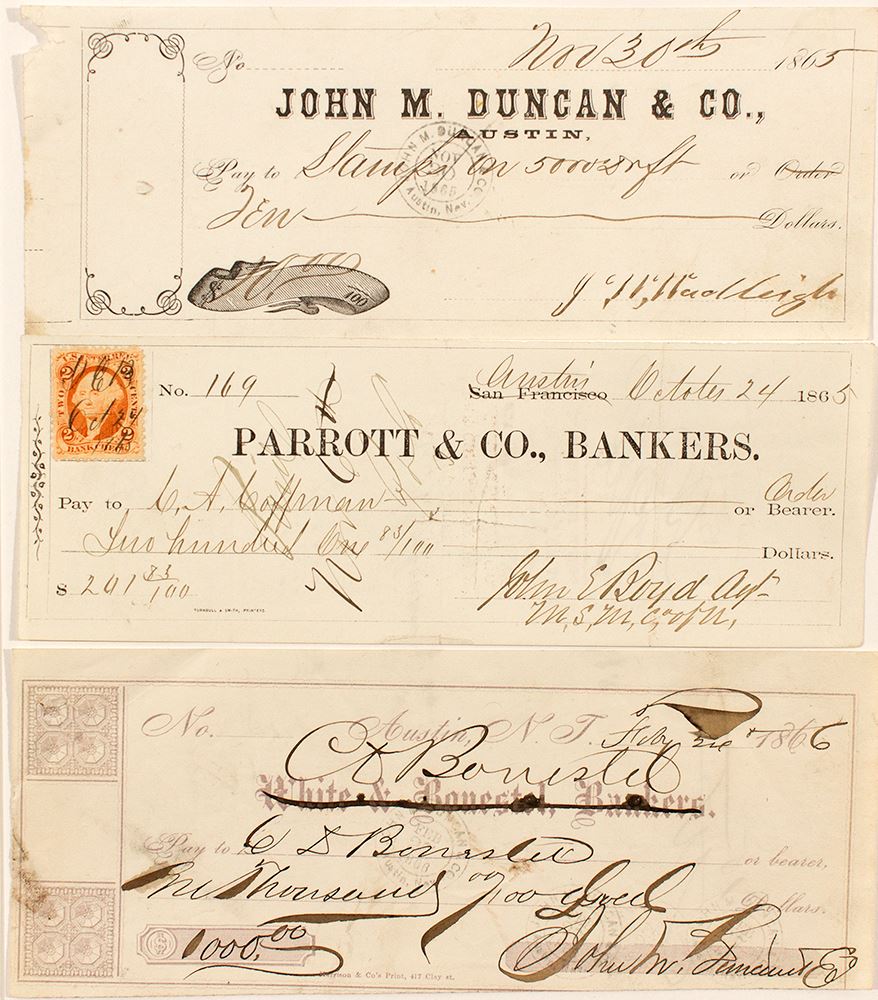 No. Nov 30th 1865
JOHN M. DUNCAN & CO.,
AUSTIN,
Pay to Stamps on 5000 drft or Order
Ten Dollars.
$ 10 00/100
JOHN M. DUNCAN & CO
NOV
1865
Austin, Nev.
U.S. INTER. REV.
2 2 CENTS
TWO
BANK CHECK
No. 169 Austin San Francisco October 24 1865
PARROTT & CO., BANKERS.
Pay to C. A. Coffman Order or Bearer.
Two hundred One 83/100 Dollars.
$ 201 83/100
John E Boyd Agt
M, S, M, Co of N,
TURNBULL & SMITH, PRINTERS.
No. Austin, N. T. Feby 1866
C D Bonestel
White & Bonestel, Bankers.
Pay to C D Bonestel or bearer,
One Thousand 00/100 Dollars.
1000.00
John M. Duncan & Co
Harrison & Co's Print, 417 Clay st.